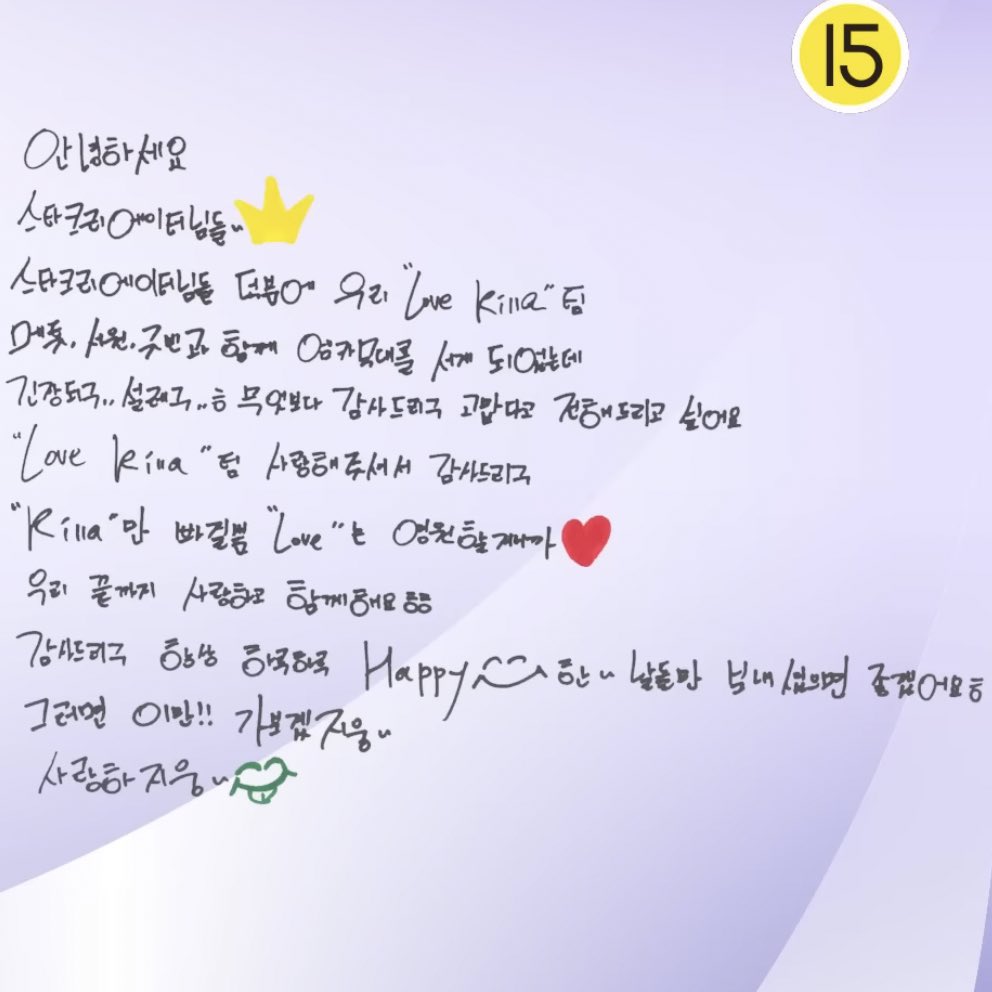 15
안녕하세요
스타크리에이터님들~
스타크리에이터님들 덕분에 우리 "Love Killa" 팀
매튜, 서원, 구빈과 함께 엠카무대를 서게 되었는데
긴장되구.. 설레구..ㅎ 무엇보다 감사드리구 고맙다고 전해드리고 싶어요
"Love Killa" 팀 사랑해주셔서 감사드리구
"Killa"만 빠질뿐 "Love"는 영원할꺼니까
우리 끝까지 사랑하고 함께해요ㅎㅎ
감사드리구 항상 하루하루 Happy 한~ 날들만 보내셨으면 좋겠어요ㅎ
그러면 이만!! 가보겠지웅~
사랑하지웅~